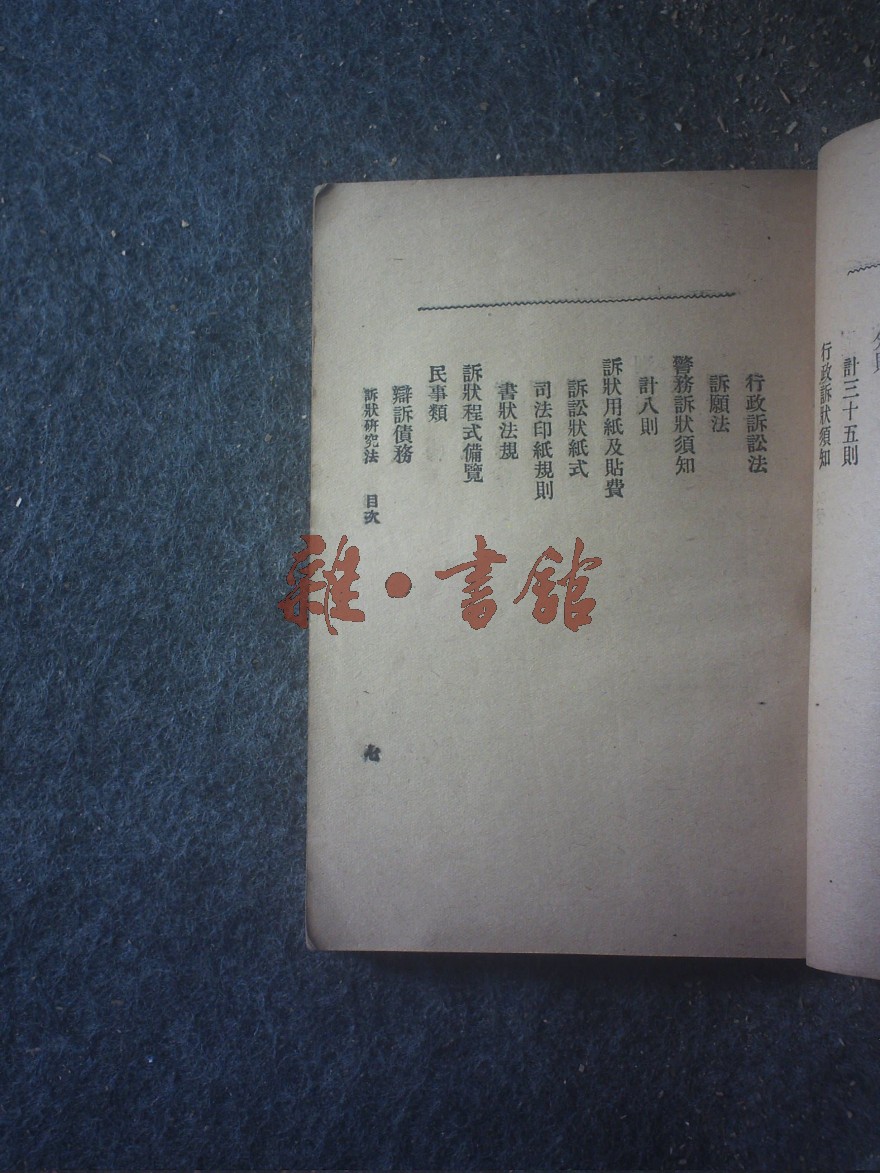 計三十五則
行政訴狀須知
行政訴訟法
訴願法
警務訴狀須知
計八則
訴狀用紙及貼費
訴訟狀紙式
司法印紙規則
書狀法規
訴狀程式備覽
民事類
辯訴債務
訴狀研究法 目次
七
雜·書館